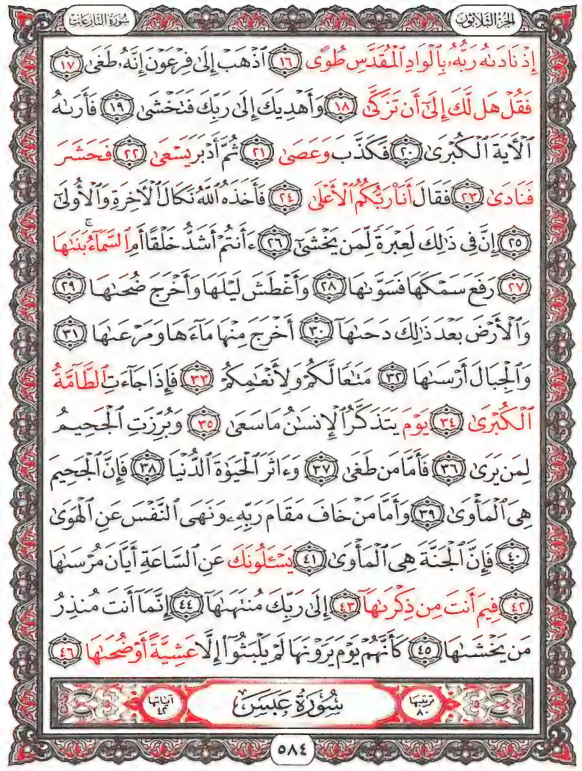 سُورَةُ النَّازِعَاتِ الجُزْءُ الثَّلَاثُونَ
إِذْ نَادَىٰهُ رَبُّهُۥ بِٱلْوَادِ ٱلْمُقَدَّسِ طُوًى ١٦ ٱذْهَبْ إِلَىٰ فِرْعَوْنَ إِنَّهُۥ طَغَىٰ ١٧
فَقُلْ هَل لَّكَ إِلَىٰٓ أَن تَزَكَّىٰ ١٨ وَأَهْدِيَكَ إِلَىٰ رَبِّكَ فَتَخْشَىٰ ١٩ فَأَرَىٰهُ
ٱلْأٓيَةَ ٱلْكُبْرَىٰ ٢٠ فَكَذَّبَ وَعَصَىٰ ٢١ ثُمَّ أَدْبَرَ يَسْعَىٰ ٢٢ فَحَشَرَ
فَنَادَىٰ ٢٣ فَقَالَ أَنَا۠ رَبُّكُمُ ٱلْأَعْلَىٰ ٢٤ فَأَخَذَهُ ٱللَّهُ نَكَالَ ٱلْأٓخِرَةِ وَٱلْأُولَىٰٓ
٢٥ إِنَّ فِى ذَٰلِكَ لَعِبْرَةً لِّمَن يَخْشَىٰٓ ٢٦ ءَأَنتُمْ أَشَدُّ خَلْقًا أَمِ ٱلسَّمَآءُ ۚ بَنَىٰهَا
٢٧ رَفَعَ سَمْكَهَا فَسَوَّىٰهَا ٢٨ وَأَغْطَشَ لَيْلَهَا وَأَخْرَجَ ضُحَىٰهَا ٢٩
وَٱلْأَرْضَ بَعْدَ ذَٰلِكَ دَحَىٰهَآ ٣٠ أَخْرَجَ مِنْهَا مَآءَهَا وَمَرْعَىٰهَا ٣١
وَٱلْجِبَالَ أَرْسَىٰهَا ٣٢ مَتَٰعًا لَّكُمْ وَلِأَنْعَٰمِكُمْ ٣٣ فَإِذَا جَآءَتِ ٱلطَّآمَّةُ
ٱلْكُبْرَىٰ ٣٤ يَوْمَ يَتَذَكَّرُ ٱلْإِنسَٰنُ مَا سَعَىٰ ٣٥ وَبُرِّزَتِ ٱلْجَحِيمُ
لِمَن يَرَىٰ ٣٦ فَأَمَّا مَن طَغَىٰ ٣٧ وَءَاثَرَ ٱلْحَيَوٰةَ ٱلدُّنْيَا ٣٨ فَإِنَّ ٱلْجَحِيمَ
هِىَ ٱلْمَأْوَىٰ ٣٩ وَأَمَّا مَنْ خَافَ مَقَامَ رَبِّهِۦ وَنَهَى ٱلنَّفْسَ عَنِ ٱلْهَوَىٰ
٤٠ فَإِنَّ ٱلْجَنَّةَ هِىَ ٱلْمَأْوَىٰ ٤١ يَسْـَٔلُونَكَ عَنِ ٱلسَّاعَةِ أَيَّانَ مُرْسَىٰهَا
٤٢ فِيمَ أَنتَ مِن ذِكْرَىٰهَآ ٤٣ إِلَىٰ رَبِّكَ مُنتَهَىٰهَآ ٤٤ إِنَّمَآ أَنتَ مُنذِرُ
مَن يَخْشَىٰهَا ٤٥ كَأَنَّهُمْ يَوْمَ يَرَوْنَهَا لَمْ يَلْبَثُوٓا۟ إِلَّا عَشِيَّةً أَوْ ضُحَىٰهَا ٤٦
ترتيبها ٨٠ سُورَةُ عَبَسَ آياتها ٤٢
٥٨٤